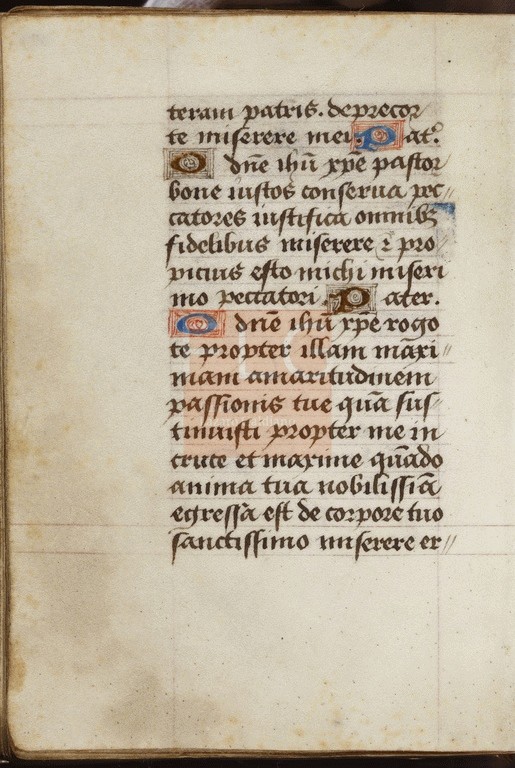 teram patris. deprecor
te miserere mei. P at̃.
O dñe ihũ xp̃e pastor
bone iustos conserua pec
catores iustifica omnibꝫ
fidelibus miserere ⁊ pro
picius esto michi miseri
mo peccatori. P ater.
O dñe ihũ xp̃e rogo
te propter illam maxi
mam amaritudinem
passionis tue quã sus
tinuisti propter me in
cruce et maxime quãdo
anima tua nobilissiã
egressa est de corpore tuo
sanctissimo miserere er